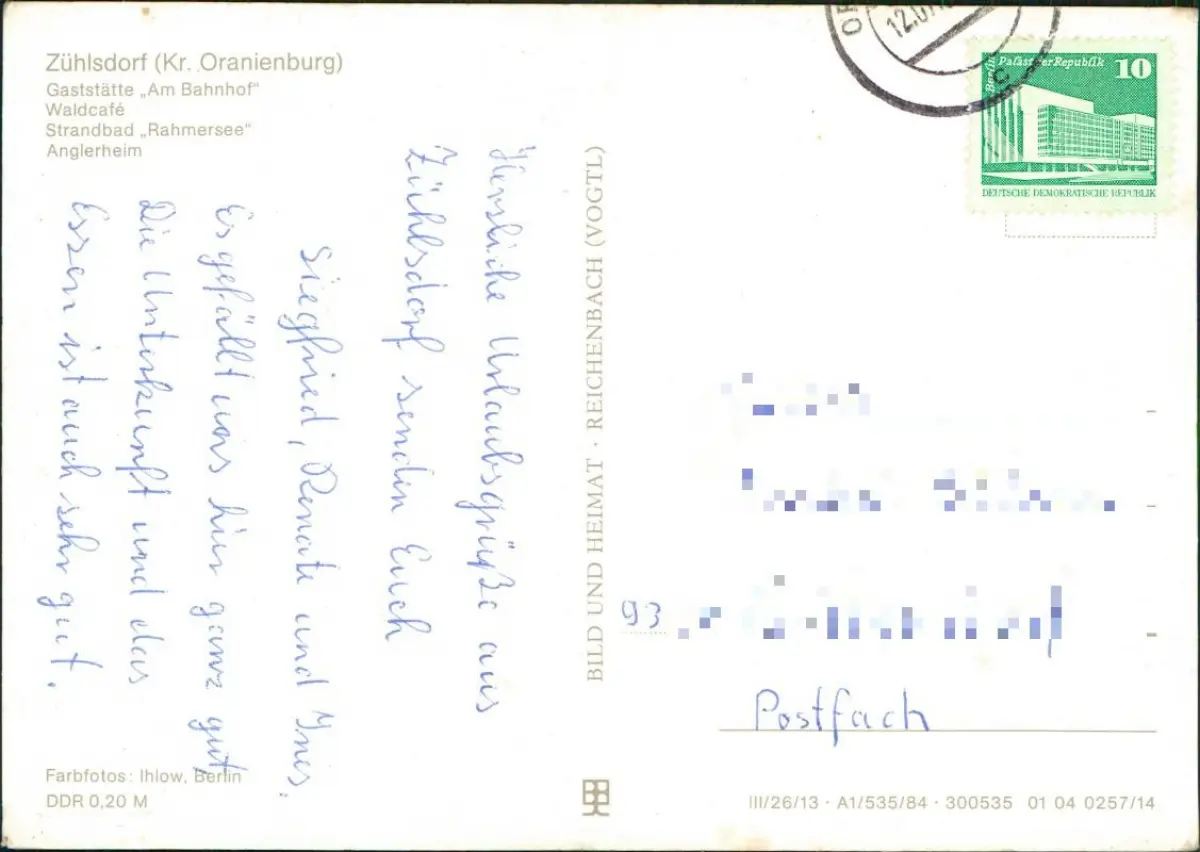 Zühlsdorf (Kr. Oranienburg)
Gaststätte „Am Bahnhof"
Waldcafé
Strandbad „Rahmersee"
Anglerheim
Herzliche Urlaubsgrüße aus
Zühlsdorf senden Euch
Siegfried, Renate und Ines.
Es gefällt uns hier ganz gut
Die Unterkunft und das
Essen ist auch sehr gut.
Farbfotos: Ihlow, Berlin
DDR 0,20 M
BILD UND HEIMAT · REICHENBACH (VOGTL)
12.07.
c
Berlin
Palast der Republik 10
DEUTSCHE DEMOKRATISCHE REPUBLIK
93
Postfach
III/26/13 · A1/535/84 · 300535 01 04 0257/14